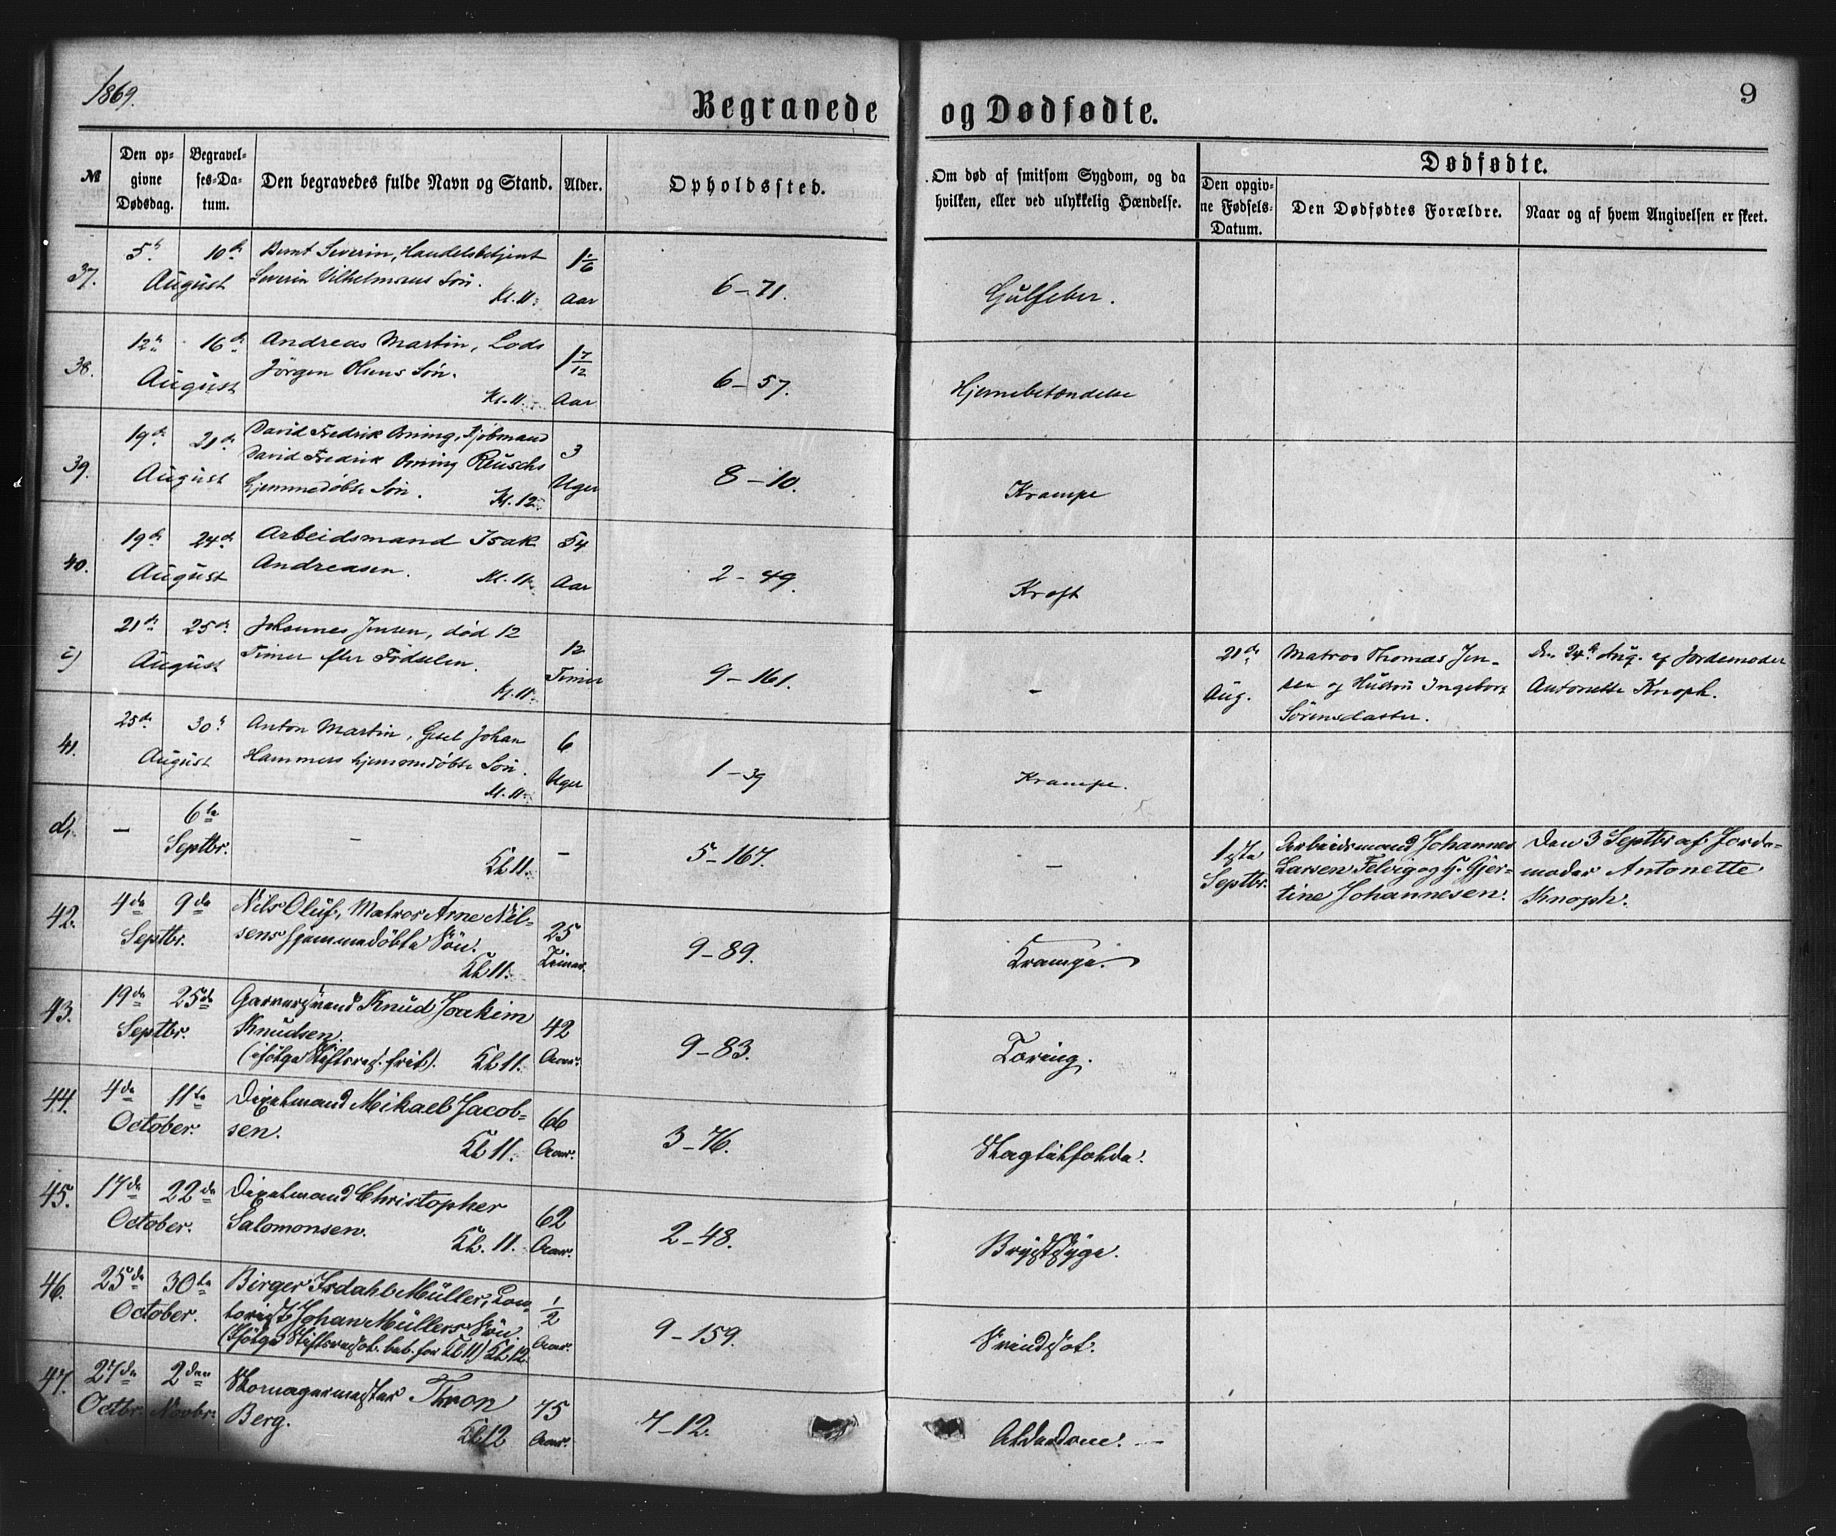 1869.
Begravede og Dødfødte.
9
№
Den opgivne Dødsdag.
Begravelses-Datum.
Den begravedes fulde Navn og Stand.
Alder.
Opholdssted.
Om død af smitsom Sygdom, og da hvilken, eller ved ulykkelig Hændelse.
Dødfødte.
Den opgivne Fødsels-Datum.
Den Dødfødtes Forældre.
Naar og af hvem Angivelsen er skeet.
37.
5te 10de August
Bernt Severin, Handelsbetjent
Severin Vilhelmsens Søn.
Kl. 11.
1 1/6 Aar
6-71.
Gulfeber.
38.
12te 16de August
Andreas Martin, Lods
Jörgen Olsens Søn.
Kl. 11.
1 7/12 Aar
6-57.
Hjernebetændelse
39.
19de 21de August
David Fredrik Orning, Kjöbmand
David Fredrik Orning Reuschs
Hjemmedöbte Søn.
Kl. 12.
3 Uger
8-10.
Krampe
40.
19de 24de August
Arbeidsmand Isak
Andreasen.
Kl. 11.
54 Aar
2-49.
Kræft
c)
21de 25de August
Johannes Jensen, död 12
Timer efter Födselen.
Kl. 11.
12 Timer
9-161.
-
21de Aug.
Matros Thomas Jen-
sen og Hustru Ingeborg
Sörensdatter.
Den 24de Aug. af Jordemoder
Antonette Knoph.
41.
25de 30te August
Anton Martin, Gsel Johan
Hammers hjemmedöbte Søn.
Kl. 11.
6 Uger
1-39
Krampe.
d)
-
6te Septbr.
-
Kl. 11.
-
5-167.
-
1ste Septbr.
Arbeidsmand Johannes
Larsen Felvig og H. Gjer-
tine Johannesen.
Den 3 Septbr af Jorde-
moder Antonette
Knoph.
42.
4de 9de Septbr.
Nils Oluf, Matros Arne Nil-
sens hjemmedöbte Sön.
Kl. 11.
25 Timer.
9-89.
Krampe.
43.
19de 25de Septbr.
Garversvend Knud Joakim
Knudsen.
(ifölge Stiftsres. frit).
Kl. 11.
42 Aar.
9-83.
Tæring.
44.
4de 11te October.
Dixelmand Mikael Jacob-
sen.
Kl. 11.
66 Aar.
3-76.
Slagtilfælde.
45.
17de 22de October.
Dixelmand Christopher
Salomonsen.
Kl. 11.
62 Aar.
2-48.
Brystsyge.
46.
25de 30te October.
Birger Isdahl Müller, Con-
torist Johan Müllers Sön.
(Ifölge Stiftsresol. bet. for Kl 11) Kl 12.
1/2 Aar.
9-159.
Svindsot.
47.
27de Octbr. 2den Novbr.
Skomagermester Thron
Berg.
Kl. 12
75 Aar.
7-12.
Alderdom.